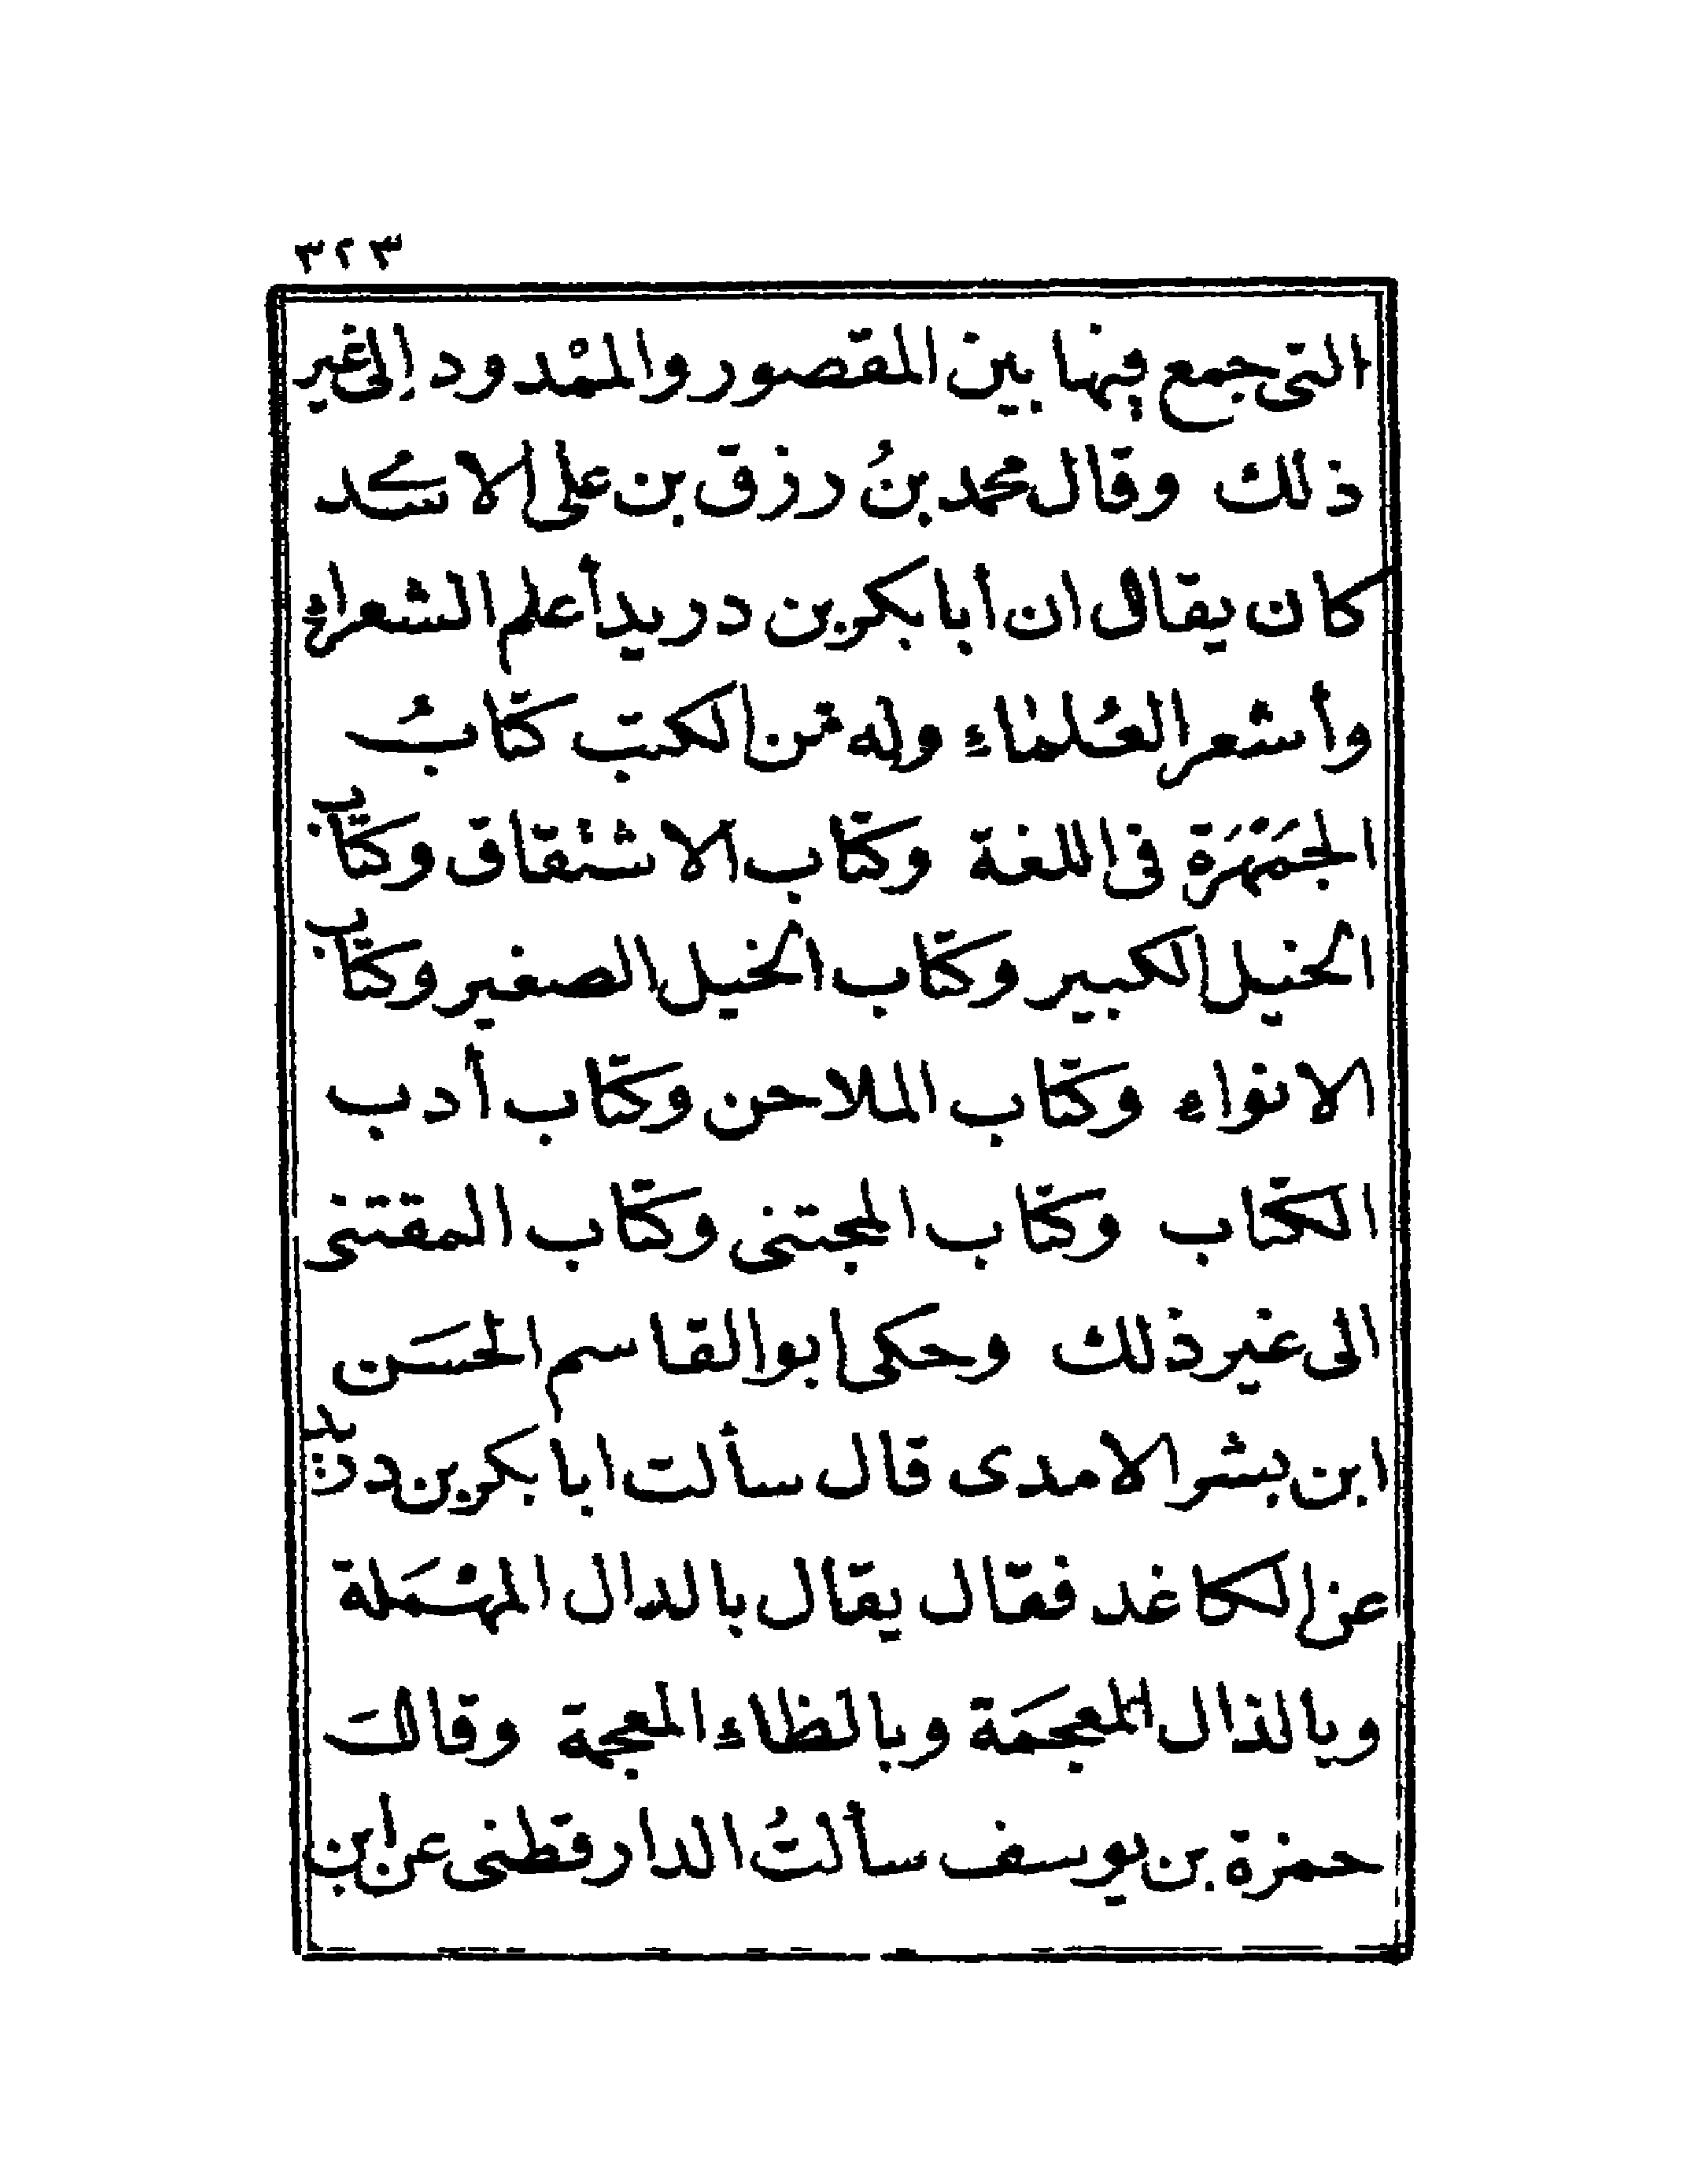 ٣٢٣
التى جمع فيها بين المقصور والممْدود إلى غير
ذلك وقال محمد بنُ رزق بن على الاسدى
كان يقال ان أبا بكر بن دريد أعلم الشعراء
وأشعر العُلماء وله من الكتب كتابُ
الجمَهَرة فى اللغة وكتاب الاشتقاق وكتاب
الخيل الكبير وكتاب الخيل الصغير وكتاب
الانواء وكتاب الملاحن وكتاب أدب
الكتاب وكتاب المجتنى وكتاب المقتنى
الى غير ذلك وحكى ابو القاسم الحسَن
ابن بشر الامدى قال سألت ابا بكر بن دريد
عن الكاغد فقال يقال بالدال المهْمَلة
وبالذال المعجمَة وبالظاء المعجمة وقال
حمزة بن يوسف سألتُ الدارقطنى عن ابن